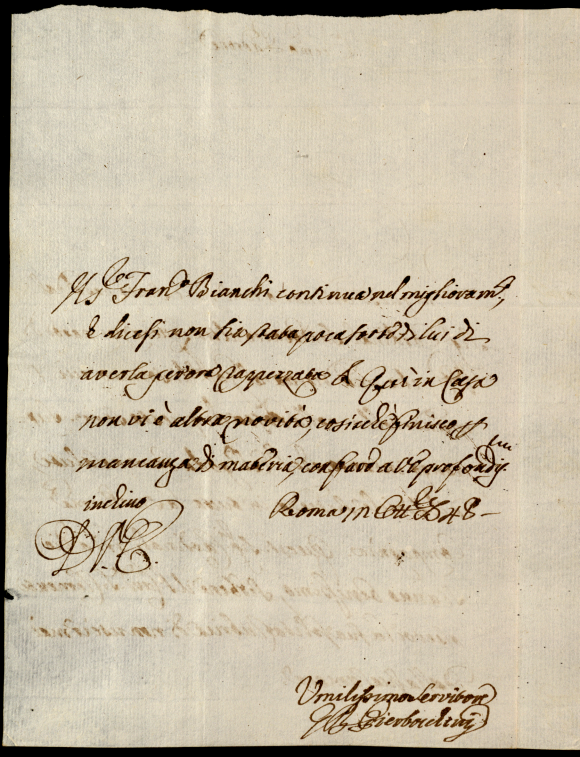 Il Sr. Franco. Bianchi continua nel miglioramto.,
E dicesi non sia stata poca sorte di lui di
averla per ora rappezzata. Qui in Casa
non vi è altra novità, cosicche finisco p
mancanza di materia, con farvi a V.E. profondmi.
inchino Roma 12 Ottbre 1748
D. V. E.
Umilissimo Servitore